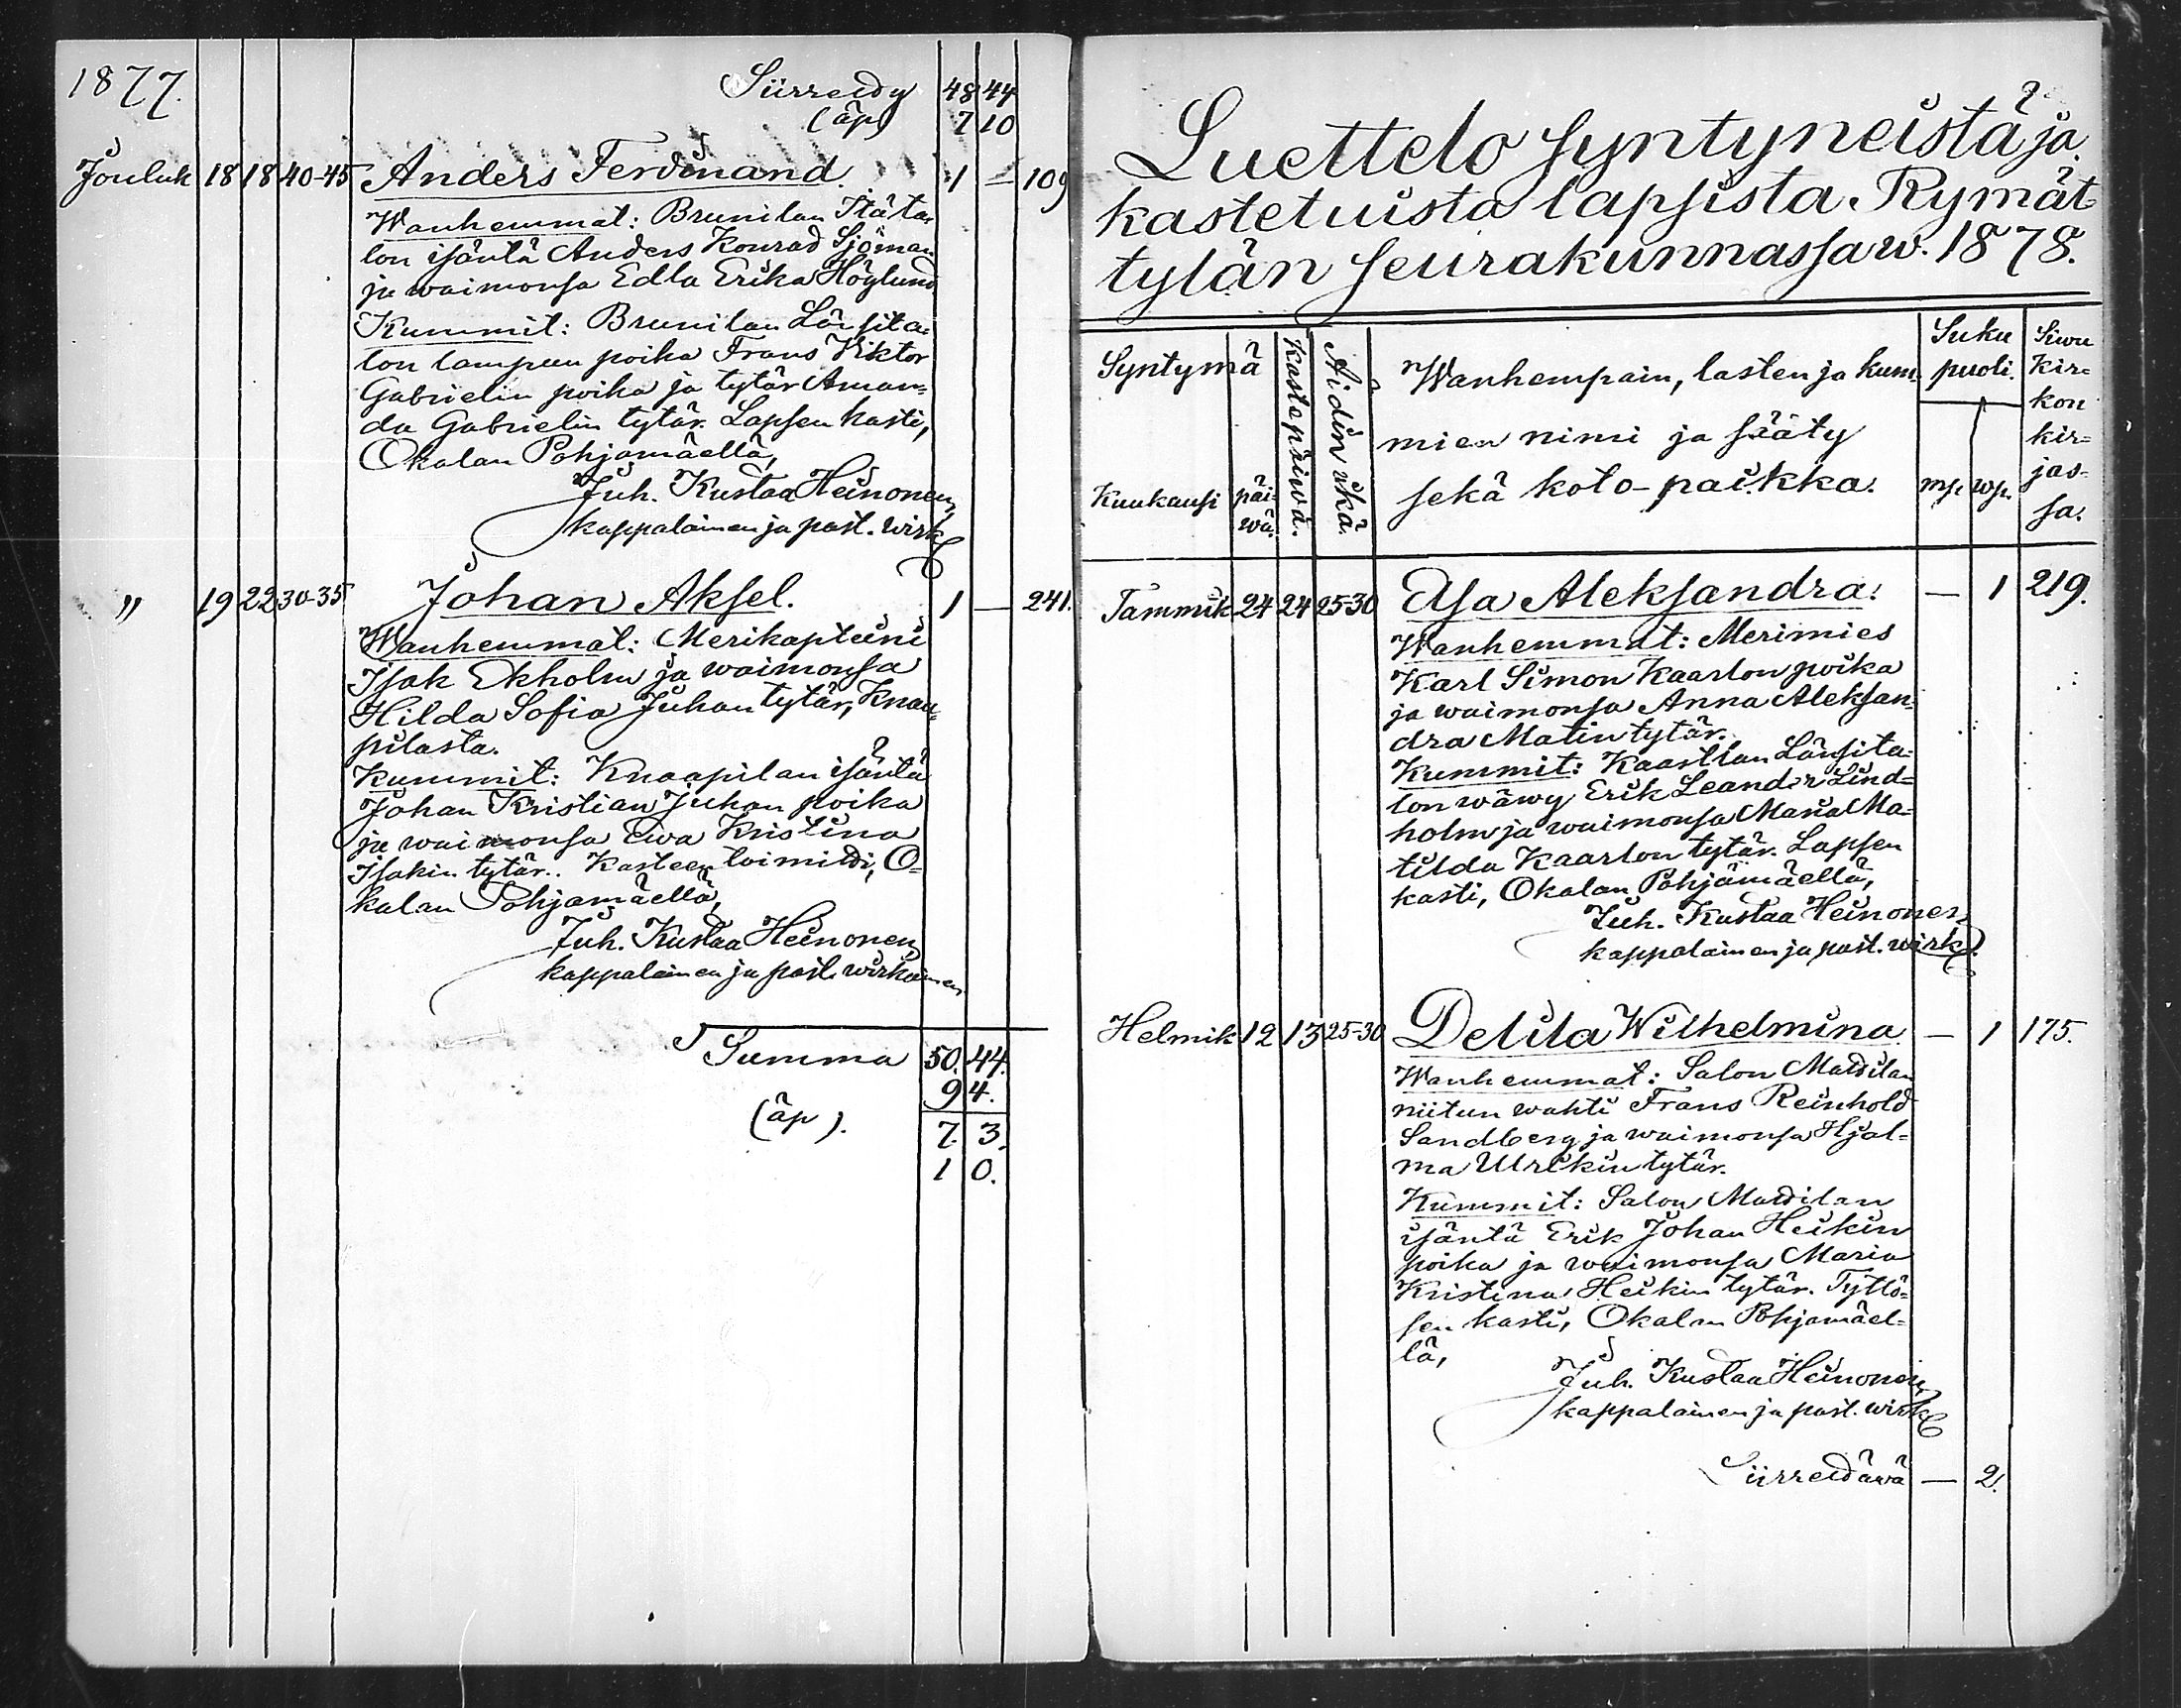 1877.
Siirretty 48 44
(äp) 7 10
Jouluk 18 18 40-45 Anders Ferdinand. 1 — 109
Wanhemmat: Brunilan Itäta-
lon isäntä Anders Konrad Sjöman
ja waimonsa Edla Erika Höglund
Kummit: Brunilan Länsita-
lon lampuu poika Frans Viktor
Gabrielin poika ja tytär Aman=
da Gabrielin tytär. Lapsen kasti,
Okalan Pohjamäellä,
Juh. Kustaa Heinonen,
kappalainen ja past. wirk.
" 19 22 30-35 Johan Aksel. 1 — 241.
Wanhemmat: Merikapteini
Isak Ekholm ja waimonsa
Hilda Sofia Juhan tytär, Knaa=
pilasta.
Kummit: Knaapilan isäntä
Johan Kristian Juhan poika
ja waimonsa Ewa Kristina
Isakin tytär. Kasteen toimitti, O=
kalan Pohjamäellä,
Juh. Kustaa Heinonen,
kappalainen ja past. wirkainen
Summa 50. 44.
9 4.
(äp). 7. 3.
1 0.
Luettelo syntyneistä ja
kastetuista lapsista Rymät
tylän seurakunnassa w. 1878.
Syntymä
Kuukausi
päi-
wä.
Kastepäiwä.
Äidin ikä.
Wanhempain, lasten ja kum-
mien nimi ja sääty
sekä koto-paikka.
Suku
puoli.
mp. wp.
Siwu
Kir=
kon
kir=
jas-
sa.
Tammik 24 24 25-30 Elsa Aleksandra. — 1 219.
Wanhemmat: Merimies
Karl Simon Kaarlon poika
ja waimonsa Anna Aleksan=
dra Matin tytär.
Kummit: Kaastlan Länsita=
lon wäwy Erik Leander Lind=
holm ja waimonsa Maria Ma=
tilda Kaarlon tytär. Lapsen
kasti, Okalan Pohjamäellä,
Juh. Kustaa Heinonen,
kappalainen ja past. wirk.
Helmik 12 13 25-30 Delila Wilhelmina. — 1 175.
Wanhemmat: Salon Mattilan
niitun wahti Frans Reinhold
Sandberg ja waimonsa Hjal=
ma Ulrikin tytär.
Kummit: Salon Mattilan
isäntä Erik Johan Heikin
poika ja waimonsa Maria
Kristina Heikin tytär. Tyttö=
sen kasti, Okalan Pohjamäel=
lä,
Juh. Kustaa Heinonen,
kappalainen ja past. wirk.
Siirrettävä — 2.